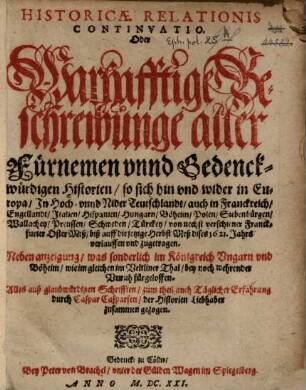 HISTORICÆ RELATIONIS
CONTINVATIO.
Oder
Eph. pol. 25
Warhafftige Be-
schreibunge aller
Fürnemen vnnd Gedenck-
würdigen Historien / so sich hin vnd wider in Eu-
ropa / In Hoch- vnnd Nider Teutschlandt / auch in Franckreich /
Engellandt / Italien / Hispanien / Hungarn / Böheim / Polen / Siebenbürgen /
Wallachey / Preussen / Schweden / Türckey / von nechst vorschiener Franck-
furter Oster Meß / biß auff die jetzige Herbst Meß dieses 1621. Jahrs
verlauffen vnd zugetragen.
Neben anzeigung / was sonderlich im Königreich Vngarn vnd
Böheim / wie im gleichen im Veltliner Thal / bey noch wehrender
Vnruh fürgeloffen.
Alles auß glaubwürdigen Schrifften / zum theil auch Täglicher Erfahrung
durch Caspar Casparsen / der Historien Liebhaber
zusammen gezogen.
Gedruckt zu Cölln /
Bey Peter von Brachel / vnter der Gülden Wagen im Spiegelberg.
ANNO M. DC. XXI.